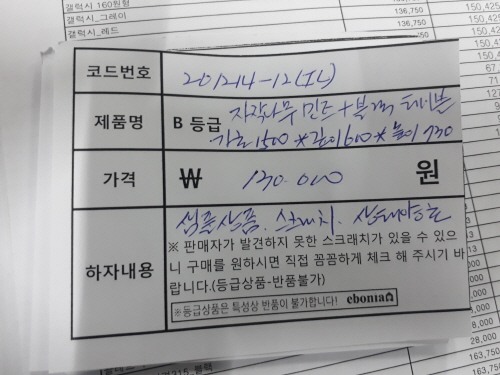 갤럭시 160원형
갤럭시_그레이
갤럭시_레드
136,750
136,750
150,425
150,425
코드번호 201214-12(IL)
제품명 B 등급 자작나무 민트+블랙 테이블
가로1500*깊이600*높이730
가격 ₩ 130.000 원
하자내용 샘플상품. 스크래치. 상태양호
※ 판매자가 발견하지 못한 스크래치가 있을 수 있으
니 구매를 원하시면 직접 꼼꼼하게 체크 해 주시기 바
랍니다.(등급상품-반품불가)
※등급상품은 특성상 반품이 불가합니다! ebonia
28,000
163,750
163,75